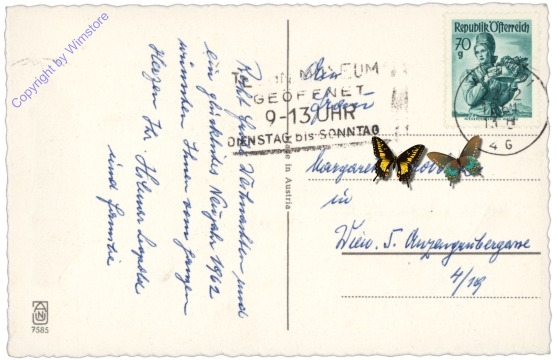 Copyright by Wimstore
Recht frohe Weihnachten und
ein glückliches Neujahr 1962
wünschen Ihnen vom ganzen
Herzen Ihr
und Familie
7585
Made in Austria
MUSEUM
GEÖFFNET
9-13 UHR
DIENSTAG bis SONNTAG
Republik Österreich
70
g
4 G
Frau
Margarete
in
Wien. 5. Anzengrubergasse
4/19